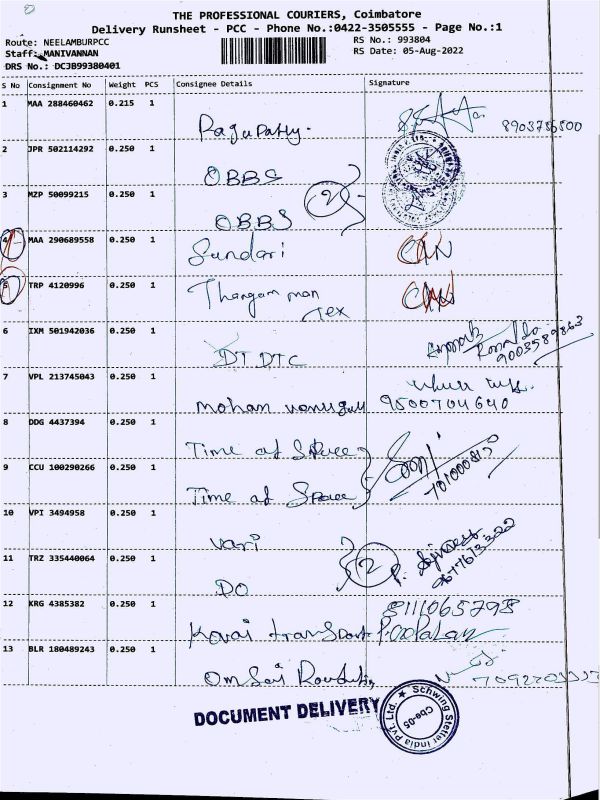 THE PROFESSIONAL COURIERS, Coimbatore
Delivery Runsheet - PCC - Phone No.:0422-3505555 - Page No.:1
Route: NEELAMBURPCC
RS No.: 993804
Staff: MANIVANNAN
RS Date: 05-Aug-2022
DRS No.: DCJB99380401
S No Consignment No Weight PCS Consignee Details Signature
1 MAA 288460462 0.215 1
Ragupathy. 8903756500
2 JPR 502114292 0.250 1
OBBS
3 MZP 50099215 0.250 1
OBBS 2
4 MAA 290689558 0.250 1
Sundari CAN
5 TRP 4120996 0.250 1
Thangam man Tex CAN
6 IXM 501942036 0.250 1
DTDTC 9003589863
7 VPL 213745043 0.250 1
mohan 9500704640
8 DDG 4437394 0.250 1
Time of Space
9 CCU 100290266 0.250 1
Time of Space
10 VPI 3494958 0.250 1
vari
11 TRZ 335440064 0.250 1
DO 2
12 KRG 4385382 0.250 1
Kovai transport P.GOPALAN 8111065798
13 BLR 180489243 0.250 1
Om Sai
DOCUMENT DELIVERY
Schwing Stetter India Pvt. Ltd.
Cbe-05